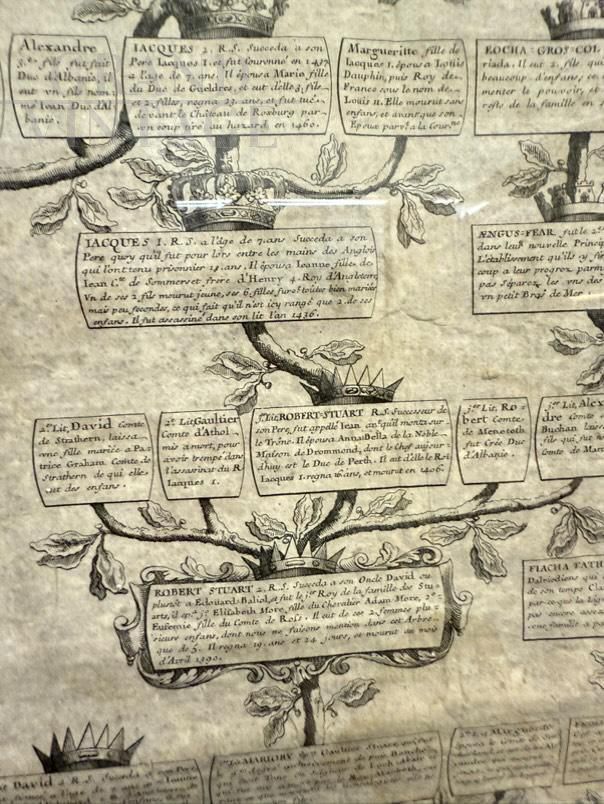 Alexandre
3.e fils, fut fait
Duc d'Albanie, il
eut vn fils nom-
mé Iean Duc d'Al
banie.
IACQUES 2. R.S. Succeda a son
Pere Iacques I. et fut Couronné en 1437
a l'age de 7. ans. Il épousa Marie, fille
du Duc de Gueldres, et eut d'elle 3. fils
et 2. filles, regna 23. ans, et fut tué
devant le Château de Roxburg par
vn coup tiré au hazard en 1460.
Margueritte fille de
Iacques I. épousa Louis
Dauphin, puis Roy de
France sous le nom de
Louis 11. Elle mourut sans
enfans, et avant que son
Epoux parvt. a la Couronne
EOCHA-GROS-COL
riada. Il eut 2. fils qui
beaucoup d'enfans, ce
menter le pouvoir, et
rests de la famille en
IACQUES I. R.S. a l'âge de 7. ans Succeda a son
Pere quoy qu'il fut pour lors entre les mains des Anglois
qui l'ont tenu prisonnier 19. ans. Il épousa Ieanne, fille de
Iean C.te de Sommerset frere d'Henry 4. Roy d'Angleterre
Vn de ses 2. fils mourut jeune, ses 6. filles furet. toutes bien mariées
mais peu fecondes, ce qui fait qu'il n'est icy rangé que 2. de ses
enfans. Il fut assassiné dans son lit l'an 1436.
ÆNGUS=FEAR, fut le 2.e
dans leur nouvelle Princip
L'établissement qu'ils y fir
coup a leur progrez parm
pas Séparez les vns des
vn petit Brás de Mer
2.e Lit, David Comte
de Strathern, laissa
vne fille mariée a Pa-
trice Graham Comte de
Strathern de qui elle
eut des enfans.
2.e Lit Gaultier
Comte d'Athol
mis a mort, pour
avoir trempé dans
l'assassinat du R.
Iacques I.
1.er Lit, ROBERT-STUART R.S. Successeur de
son Pere, fut appellé Iean avant qu'il monta sur
le Trône. Il épousa AnnaBella de la Noble
Maison de Drommond, dont le Chef aujour-
dhuy est le Duc de Perth. Il eut d'elle le Roi
Iacques I. regna 16. ans, et mourut en 1406.
3.e Lit, Ro-
bert Comte
de Meneteth
fut Crée Duc
d'Albanie.
Lit, Alex
dre Comte
Buchan laiss
fils qui fut
Comte de Mar
ROBERT STUART 2. R.S. Succeda a son Oncle David ou
plutôt a Edouard Baliol, et fut le 1.er Roy de la famille des Stu-
arts, il ep. Elisabeth More, fille du Chevalier Adam More, 2.e
Eufemie, fille du Comte de Ross. Il eut de ces 2 femmes plu-
sieurs enfans, dont nous ne faisons mention dans cet Arbre
que de 5. Il regna 19. ans et 24. jours, et mourut au mois
d'Avril 1390.
FIACHA
Dalriodiens qui
de son temps
par-ce que la lig
pas encore
vne famille a pa
David 2. R.S. Succeda a son Pere
MARIORY